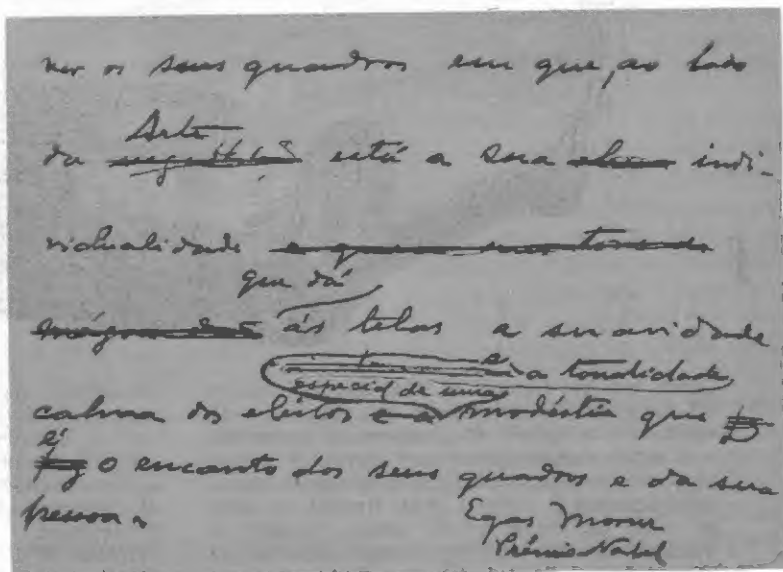 ver os seus quadros em que, ao lado
Arte
da está a sua indi-
vidualidade
que dá
ás telas a suavidade
e a tonalidade
especial de uma
calma dos eleitos modéstia que
é
o encanto dos seus quadros e da sua
pessoa.
Egas Moniz
Prémio Nobel